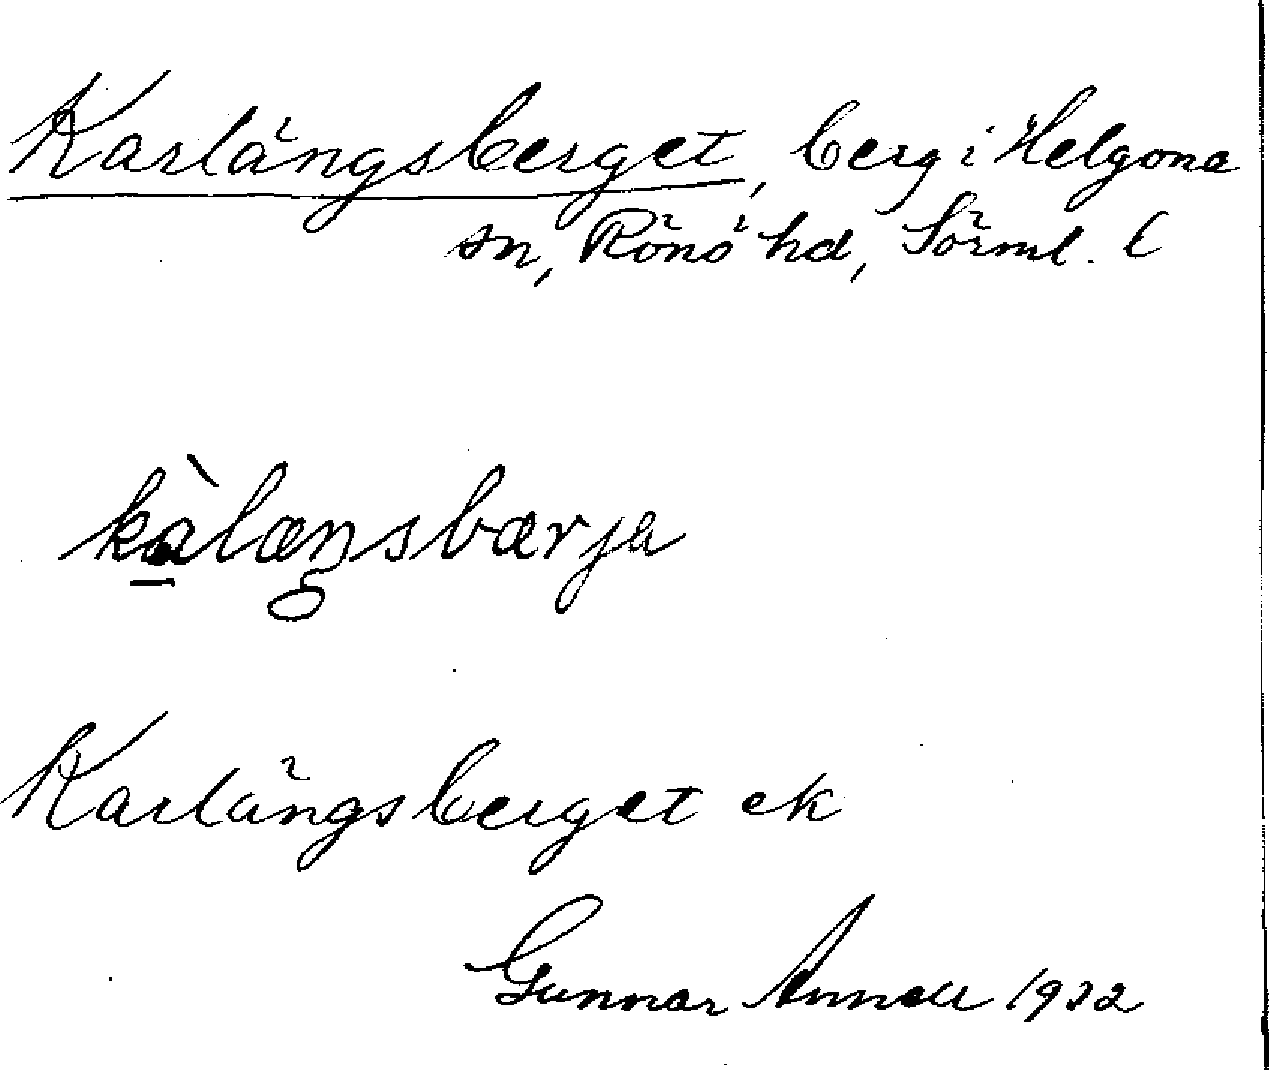 Karlängsberget, berg i Helgona
sn, Rönö hd, Sörml. l
kàlæŋsbærja
Karlängsberget ek
Gunnar Annell 1932